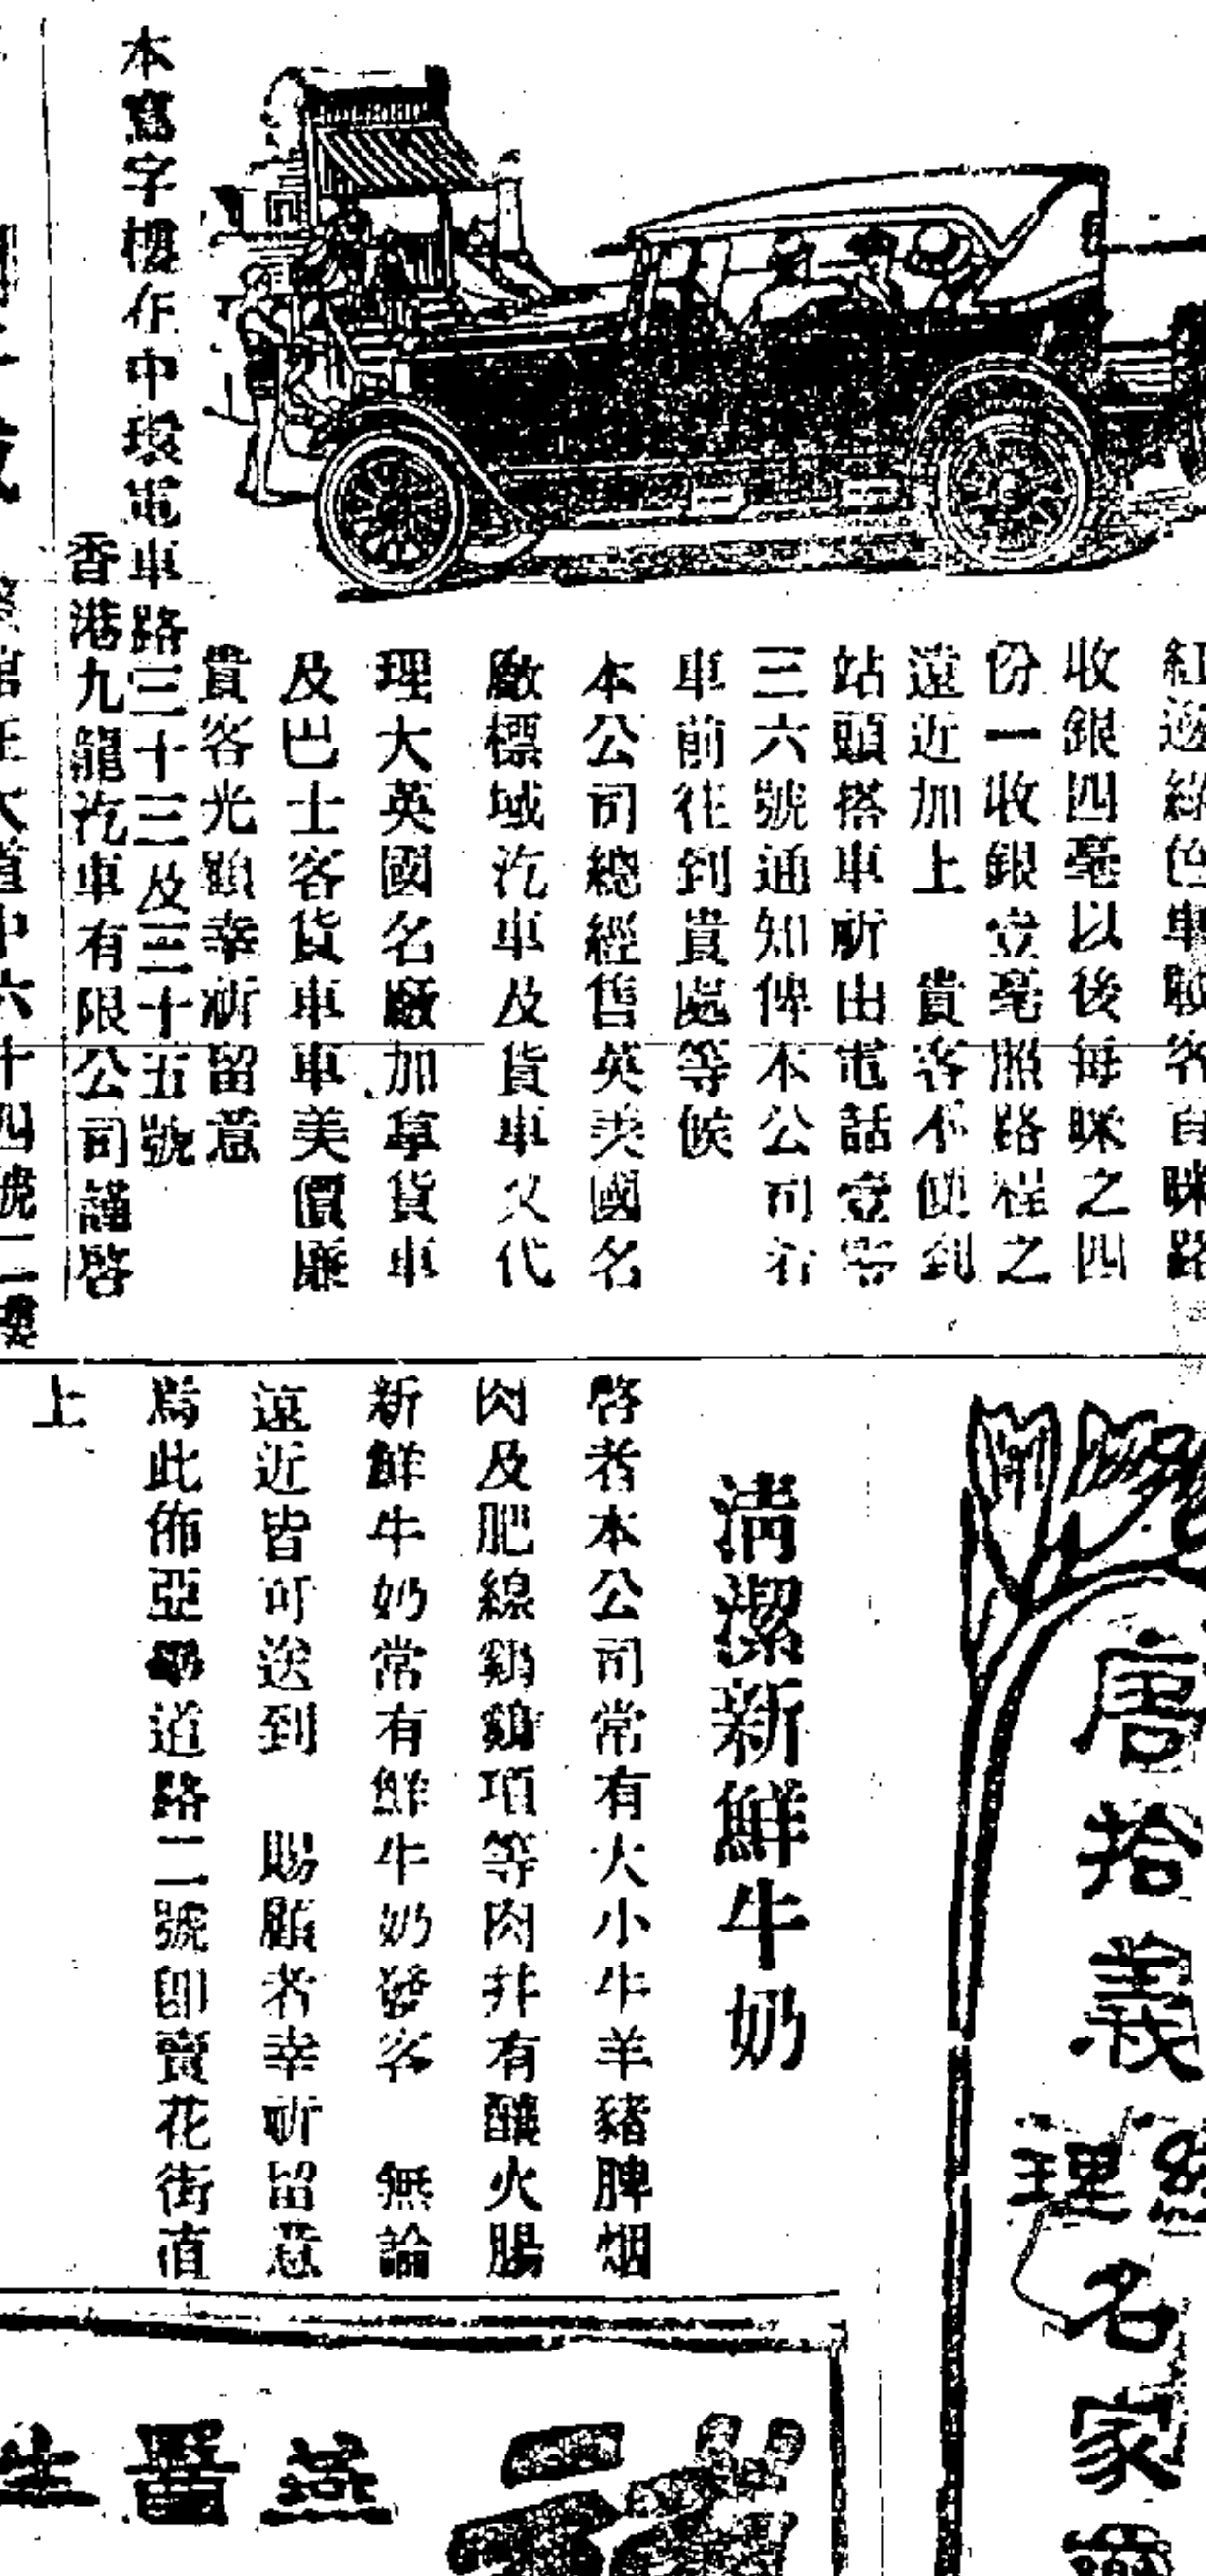 紅邊綠色車駛客百咪路
收銀四毫以後每咪之四
份一收銀壹毫照路程之
遠近加上 貴客不便到
站頭搭車祈由電話壹零
三六號通知俾本公司着
車前往到貴處等候
本公司總經售英美國名
廠標域汽車及貨車又代
理大英國名廠加拿貨車
及巴士客貨車車美價廉
貴客光顧幸祈留意
本寫字樓在中環電車路三十三及三十五號
香港九龍汽車有限公司謹啓
大道中六十四號二樓
唐拾義
總理
名家
清潔新鮮牛奶
啓者本公司常有大小牛羊豬脾烟
肉及肥線鷄鷄項等肉并有釀火腸
新鮮牛奶常有鮮牛奶發客 無論
遠近皆可送到 賜顧者幸祈留意
爲此佈亞畢道路二號卽賣花街直
上
燕醫生